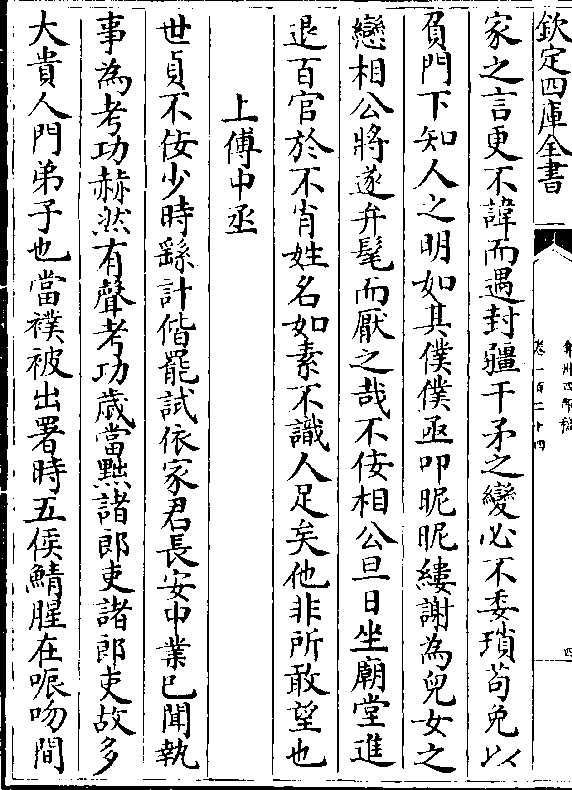 欽定四庫全書
弇州四部稿
卷一百二十四
四
家之言更不諱而遇封疆干矛之變必不委瑣苟免以
負門下知人之明如其僕僕亟叩昵昵縷謝為兒女之
戀相公將遂弁髦而厭之哉不佞相公旦日坐廟堂進
退百官於不肖姓名如素不識人足矣他非所敢望也
上傅中丞
世貞不佞少時繇計偕罷試依家君長安中業已聞執
事為考功赫然有聲考功歲當黜諸郎吏諸郎吏故多
大貴人門弟子也當襆被出署時五侯鯖腥在哌吻間